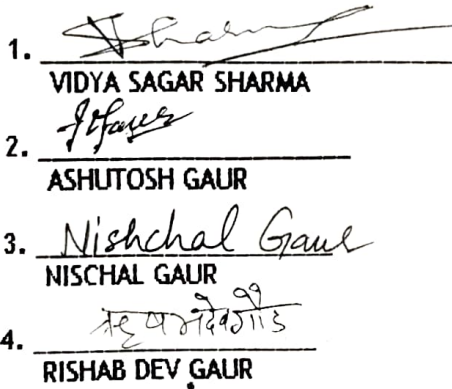 1. Sharma
VIDYA SAGAR SHARMA
2. AGaur
ASHUTOSH GAUR
3. Nishchal Gaur
NISCHAL GAUR
4. ऋषभदेव गौड
RISHAB DEV GAUR